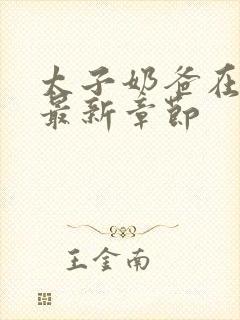 太子奶爸在
最新章节
王金南